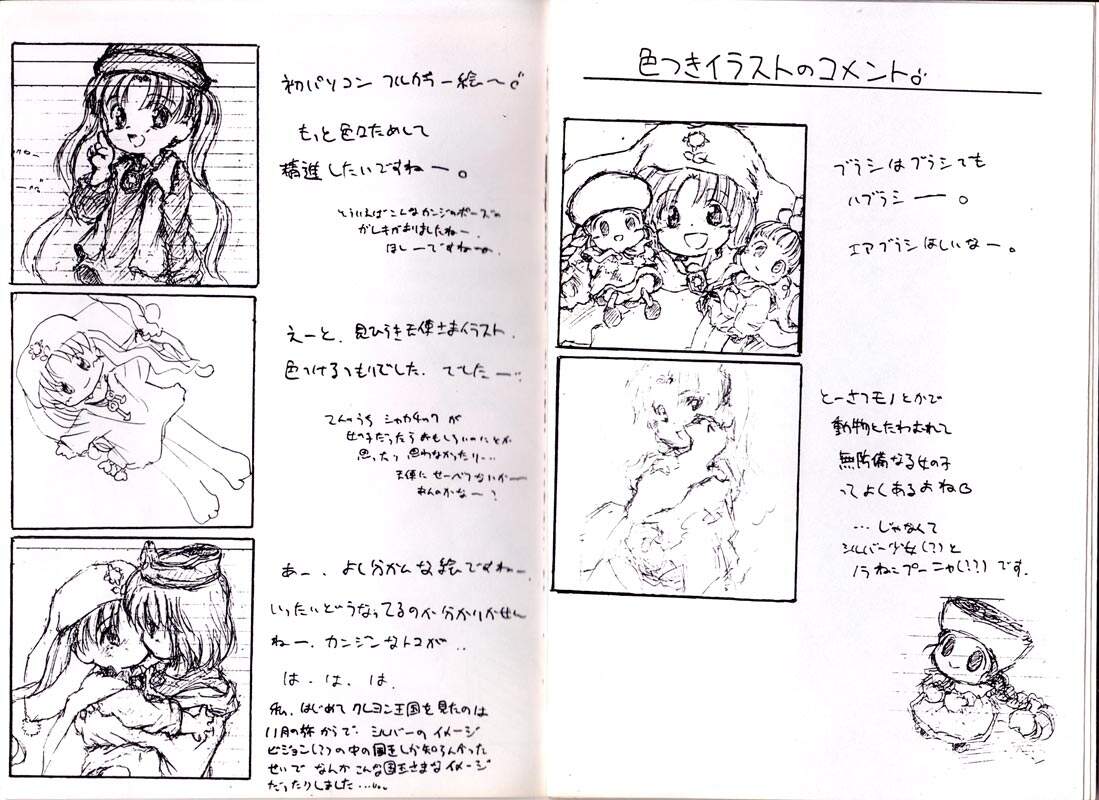 色つきイラストのコメント。
ブラシはブラシでも
ハブラシ――。
エアブラシほしいなー。
とーさつモノとかで
動物とたわむれて
無防備なる女の子
ってよくあるおね
…じゃなくて
シルバー少女(?)と
ノラねこプーニャ(??)です.
初パソコン フルカラー絵〜
もっと色々ためして
精進したいですねー。
そういえばこんなカンジのポーズの
がレキがありましたねー.
ほしーですねー。
えーと、見ひらき天使さまイラスト.
色つけるつもりでした. でしたー…
てんのうち シャカチック が
女の子だったらおもしろいのにとか
思ったり 思わなかったり…
天使に せーべつ ないかー
あー、よく分かんな絵ですねー
いったいどうなってるのか分かりませんが
ねー、カンジンなトコが..
は、は、は.
私、はじめて クレヨン王国を見たのは
11月の旅 からで シルバーの イメージ
ビジョン(?)の中の国王しか知らんかった
せいで なんか こんな国王さまなイメージ
だったりしました……